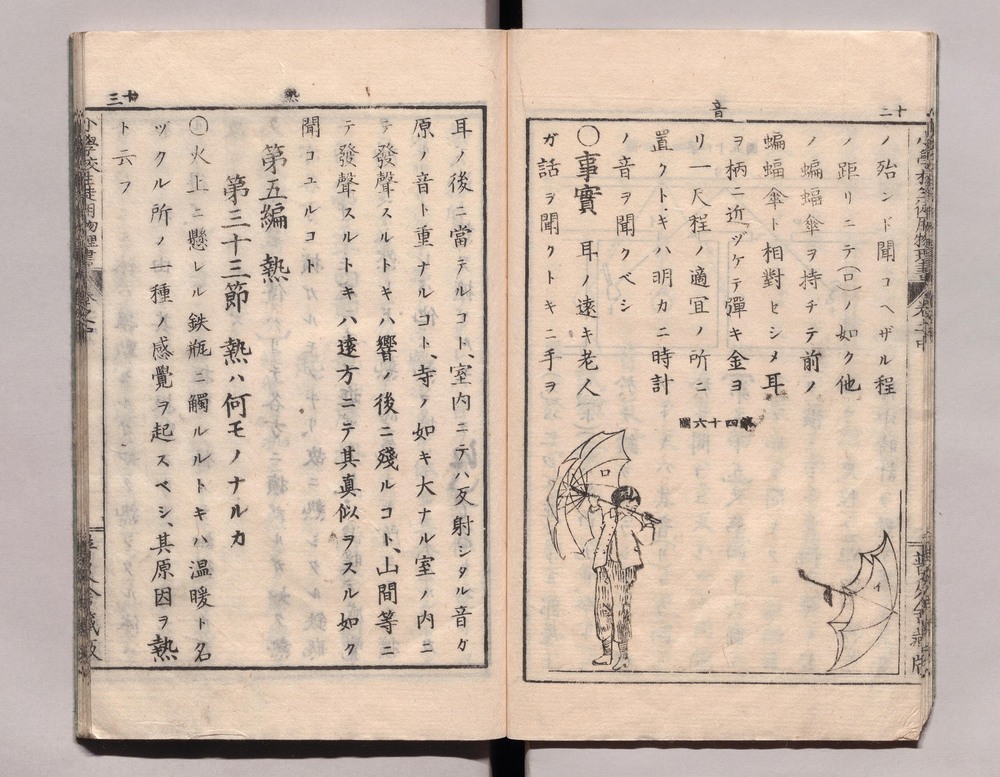 音
十二
ノ殆ンド聞コヘザル程
ノ距リニテ(ロ)ノ如ク他
ノ蝙蝠傘ヲ持チテ前ノ
蝙蝠傘ト相對セシメ耳
ヲ柄ニ近ヅケテ彈キ金ヨ
リ一尺程ノ適宜ノ所ニ
置クトキハ明カニ時計
ノ音ヲ聞クベシ
〇事實 耳ノ遠キ老人
ガ話ヲ聞クトキニ手ヲ
第四十六圖
ロ
イ
熱
十三
耳ノ後ニ當テルコト、室内ニテハ反射シタル音ガ
原ノ音ト重ナルコト、寺ノ如キ大ナル室ノ内ニ
テ發聲スルトキハ響ノ後ニ殘ルコト、山間等ニ
テ發聲スルトキハ遠方ニテ其真似ヲスル如ク
聞コユルコト
第五編 熱
第三十三節 熱ハ何モノナルカ
火上ニ懸レル鉄瓶ニ觸ルルトキハ温暖ト名
ヅクル所ノ一種ノ感覺ヲ起スベシ、其原因ヲ熱
ト云フ
小學校生徒用物理書 卷之中